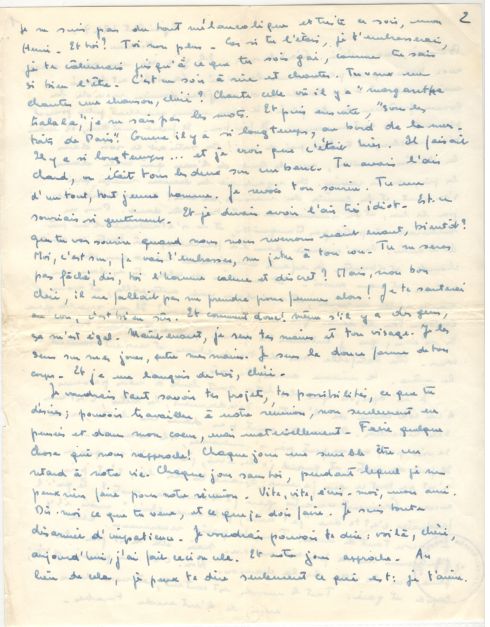 2
Je ne suis pas du tout mélancolique et triste ce soir, mon
Henri. Et toi? Toi non plus. Car si tu l'étais, je t'embrasserais,
je te câlinerais jusqu'à ce que tu sois gai, comme tu sais
si bien l'être. C'est un soir à rire et chanter. Tu veux me
chanter une chanson, chéri? Chante celle où il y a "margarita
tralala", je ne sais pas les mots. Et puis ensuite, "sous les
toits de Paris". Comme il y a si longtemps, au bord de la mer.
Il y a si longtemps... et je crois que c'était hier. Il faisait
chaud, on était tous les deux sur un banc. Tu avais l'air
d'un tout, tout jeune homme. Je revois ton sourire. Tu me
souriais si gentiment. Et je devais avoir l'air très idiot. Est-ce
que tu vas sourire quand nous nous reverrons maintenant, bientôt?
Moi, c'est sûr, je vais t'embrasser, me jeter à ton cou. Tu ne seras
pas fâché, dis, toi l'homme calme et discret? Mais, mon bon
chéri, il ne fallait pas me prendre pour femme alors! Je te sauterai
au cou, c'est bien sûr. Et comment donc! même s'il y a des gens,
ça m'est égal. Maintenant, je sens tes mains et ton visage. Je les
sens sur mes joues, entre mes mains. Je sens la douce forme de ton
corps. Et je me languis de toi, chéri.
Je voudrais tant savoir tes projets, tes possibilités, ce que tu
désires; pouvoir travailler à notre réunion, non seulement en
pensée et dans mon coeur, mais matériellement. Faire quelque
chose qui nous rapproche! Chaque jour me semble être un
retard à notre vie. Chaque jour sans toi, pendant lequel je ne
peux rien faire pour notre réunion. Vite, vite, écris-moi, mon ami.
Dis-moi ce que tu veux, et ce que je dois faire. Je suis toute
désarmée d'impatience. Je voudrais pouvoir te dire: voilà, chéri,
aujourd'hui, j'ai fait ceci ou cela. Et notre jour approche. Au
lieu de cela, je peux te dire seulement ce qui est: je t'aime.